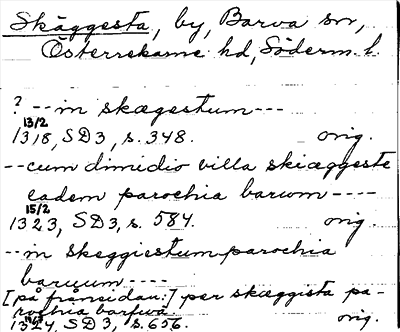 Skäggesta, by, Barva sn,
Österrekarne hd, Söderm. l.
? -- in skægestum ---
13/2
1318, SD3, s. 348. orig.
-- cum dimidio villa skiæggeste
eadem parochia baruom ----
15/2
1323, SD3, s. 584. orig.
-- in skeggiestum parochia
baruum ----
[på frånsidan:] per skæggista pa-
rochia barfwa.
1324, SD3, s. 656. orig.